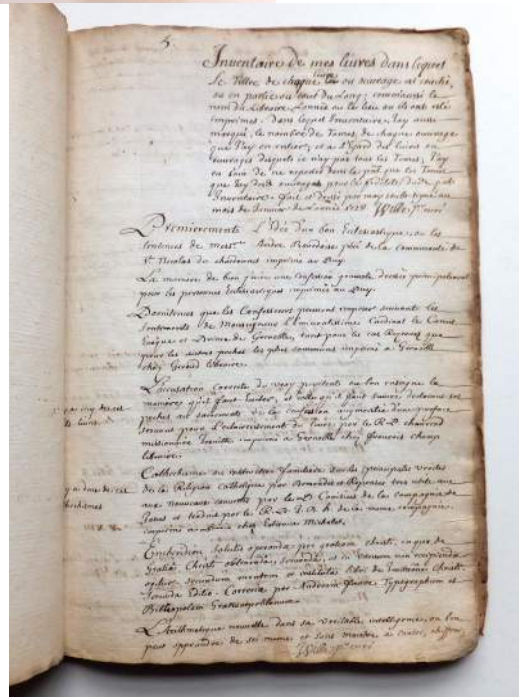 5
Inventaire de mes livres dans lequel
le Tiltre de chaque livre ou ouvrage est couché,
ou en partie ou tout du Long; comme aussi le
nom du Libraire L'année ou le lieu ou ils ont esté
imprimés. Dans lequel Inventaire, J'ay aussi
marqué, le nombre de Tomes de chaque ouvrage
que J'ay en entier; et a l'Egard des livres ou
ouvrages desquels je n'ay pas tous les Tomes, J'ay
eu soin de ne exposer dans le pnt que les Tomes
que J'ay desd ouvrages pour la fidélité dud. pnt
Inventaire. fait et dressé par moy soubs-signé au
mois de Janvier de L'année
Premierement L'Idée d'un bon Ecclesiastique, ou les
sentences de messr. Bourdoise pbre de la communauté de
St Nicolas du chardonnet imprimé au Puy.
La maniere de bon faire une confession generale dressée principalement
pour les personnes Ecclesiastiques imprimée au Puy.
Penitences que les Confesseurs peuvent imposer suivant les
sentiments de Monseigneur L'Eminentissime Cardinal le Camus
Evêque et Prince de Grenoble, tant pour les cas Reservés que
pour les autres pechés les plus communs imprimé a Grenoble
chez Libraire.
L'accusation Correcte du vray penitent ou l'on enseigne la
maniere qu'il faut Eviter, et celle qu'il faut suivre declarant ses
pechés au sacrement de la confession augmentée d'une preface
servant pour l'eclaircissement du livre par le R. P. chaurend
missionnaire imprimée a Grenoble chez françois champ
libraire.
Cathechisme ou instruction familiere sur les principales verités
de la Religion Catholique par Demandes et Reponses tres utile aux
aux nouveaux convertis par le P. Canisius de la compagnie de
Jesus et traduit par le R. P. de la meme compagnie.
imprimée a Paris chez Estienne Michalet.
Enchiridion salutis operanda per gratiam christi, in quo de
Gratia Christi obtinenda, servanda, et in vacuum non recipienda
agitur secundum mentem et libri de Imitatione Christi.
secunda Editio Correcta per Typographum et
Bibliopolam Gratianopolitanum.
L'Arithmetique nouvelle dans sa veritable ou l'on
peut apprendre de soi meme et sans maitre, a conter, chiffrer,